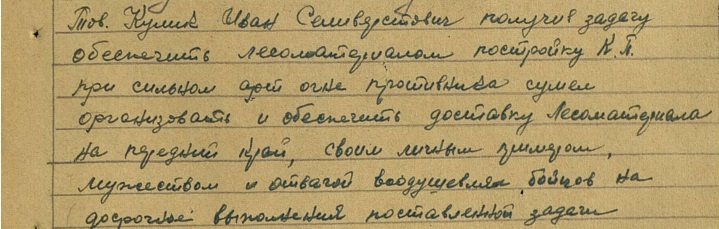 Тов. Кулик Иван Селиверстович получив задачу
обеспечить лесоматериалом постройку К.П.
при сильном арт огне противника сумел
организовать и обеспечить доставку лесоматериала
на передний край, своим личным примером,
мужеством и отвагой воодушевлял бойцов на
досрочное выполнения поставленной задачи